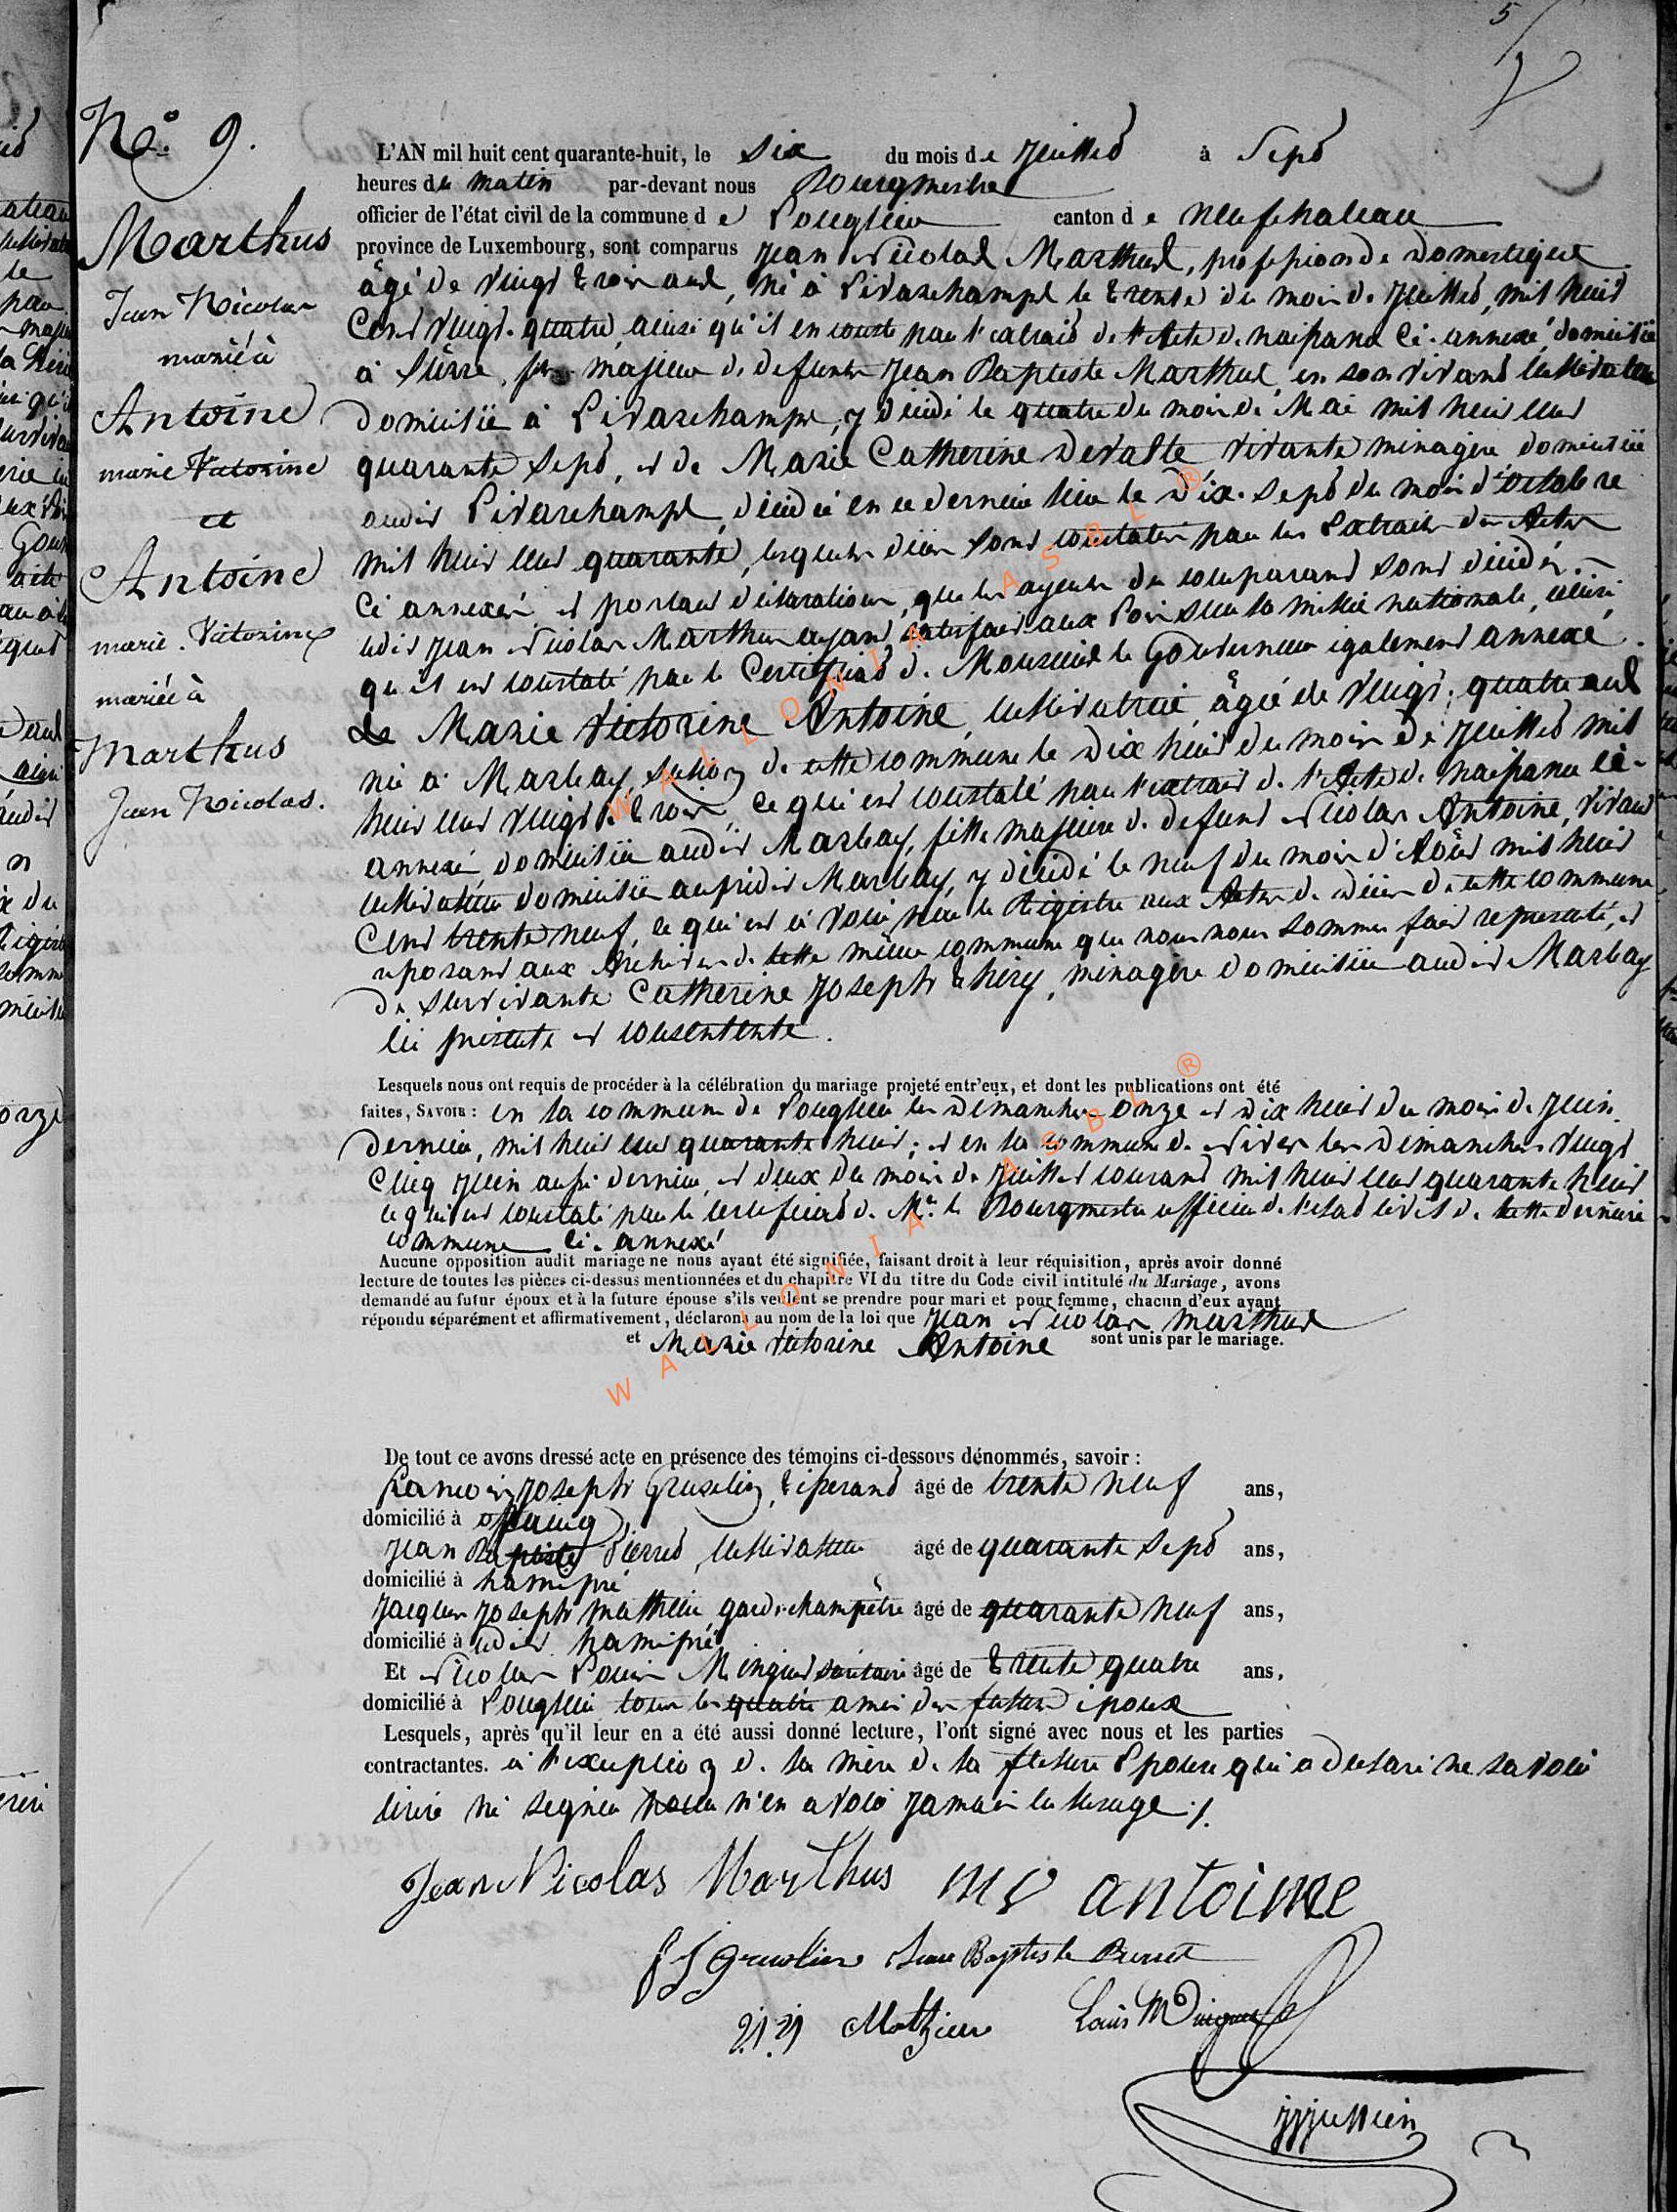 5
No. 9.
Marthus
Jean Nicolas
marié à
Antoine
marie Victorine
et
Antoine
marie Victorine
mariée à
Marthus
Jean Nicolas.
L'AN mil huit cent quarante-huit, le six du mois de Juillet à Sept
heures du matin par-devant nous Bourgmestre
officier de l'état civil de la commune de Longlier canton de neufchateau
province de Luxembourg, sont comparus Jean Nicolas Marthus, profession de Domestique
âgé de vingt trois ans, né à Livarchamps le trente du mois de Juillet, mil huit
Cent vingt-quatre, ainsi qu'il en conste par l'extrait de l'Acte de naissance ci-annexé, domicilié
à Sûrre, fils majeur de defunts Jean Baptiste Marthus en son vivant cultivateur
domicilié à Livarchamps, y décédé le quatre du mois de Mai mil huit cent
quarante sept, et de Marie Catherine Devalte vivante ménagère domiciliée
audit Livarchamps, décédée en ce dernier lieu le dix-sept du mois d'octobre
mil huit cent quarante, lesquels décès sont constatés par les Extraits des Actes
Ci annexés et portant déclaration, que les ayeuls du comparant sont décédés.
ledit Jean Nicolas Marthus ayant satisfait aux Lois sur la milice nationale, ainsi
qu'il est constaté par le Certificat de Monsieur le Gouverneur également annexé.
de Marie Victorine Antoine, cultivatrice, âgée de vingt-quatre ans
née à Marbay, section de cette commune le dix huit du mois de Juillet mil
huit cent vingt trois, ce qui est constaté par l'extrait de l'Acte de naissance ci-
annexé, domiciliée audit Marbay, fille majeure de defunt Nicolas Antoine, vivant
cultivateur domicilié auprédit Marbay, y décédé le neuf du mois d'Août mil huit
Cent trente neuf, ce qui est à voir par le Registre aux Actes de décès de cette commune
reposant aux Archives de cette même commune que nous nous sommes fait représenté, et
de survivante Catherine Joseph Thiry, ménagère domiciliée audit Marbay
ici présente et consentente.
Lesquels nous ont requis de procéder à la célébration du mariage projeté entr'eux, et dont les publications ont été
faites, SAVOIR : en la commune de Longlier les Dimanches onze et dix huit du mois de Juin
dernier, mil huit cent quarante huit ; et en la commune de Nives les dimanches vingt
Cinq Juin aussi dernier, et deux du mois de Juillet courant mil huit cent quarante huit
ce qui est constaté par le certificat de Mr. le Bourgmestre officier de l'état civil de cette dernière
commune ci-annexé
Aucune opposition audit mariage ne nous ayant été signifiée, faisant droit à leur réquisition, après avoir donné
lecture de toutes les pièces ci-dessus mentionnées et du chapitre VI du titre du Code civil intitulé du Mariage, avons
demandé au futur époux et à la future épouse s'ils veulent se prendre pour mari et pour femme, chacun d'eux ayant
répondu séparément et affirmativement, déclarons au nom de la loi que Jean Nicolas Marthus
et Marie Victorine Antoine sont unis par le mariage.
De tout ce avons dressé acte en présence des témoins ci-dessous dénommés, savoir :
Francois Joseph Gruselin, tisserand âgé de trente neuf ans,
domicilié à Offaing,
Jean Baptiste Pierret, cultivateur âgé de quarante sept ans,
domicilié à hamipré
Jacques Joseph Mathieu garde champêtre âgé de quarante neuf ans,
domicilié à udit hamipré
Et Nicolas Louis Minguet sécrétaire âgé de trente quatre ans,
domicilié à Longlier tous les quatre amis des futurs époux
Lesquels, après qu'il leur en a été aussi donné lecture, l'ont signé avec nous et les parties
contractantes. à l'exception de la mère de la future Epouse qui a déclaré ne savoir
écrire ni signer pour n'en avoir jamais eu l'usage ./.
Jean Nicolas Marthus mv antoine
f J Gruselin Jean Baptiste Pierret
J.J. Mathieu Louis Minguet
WALLONIA ASBL ®
WALLONIA ASBL ®